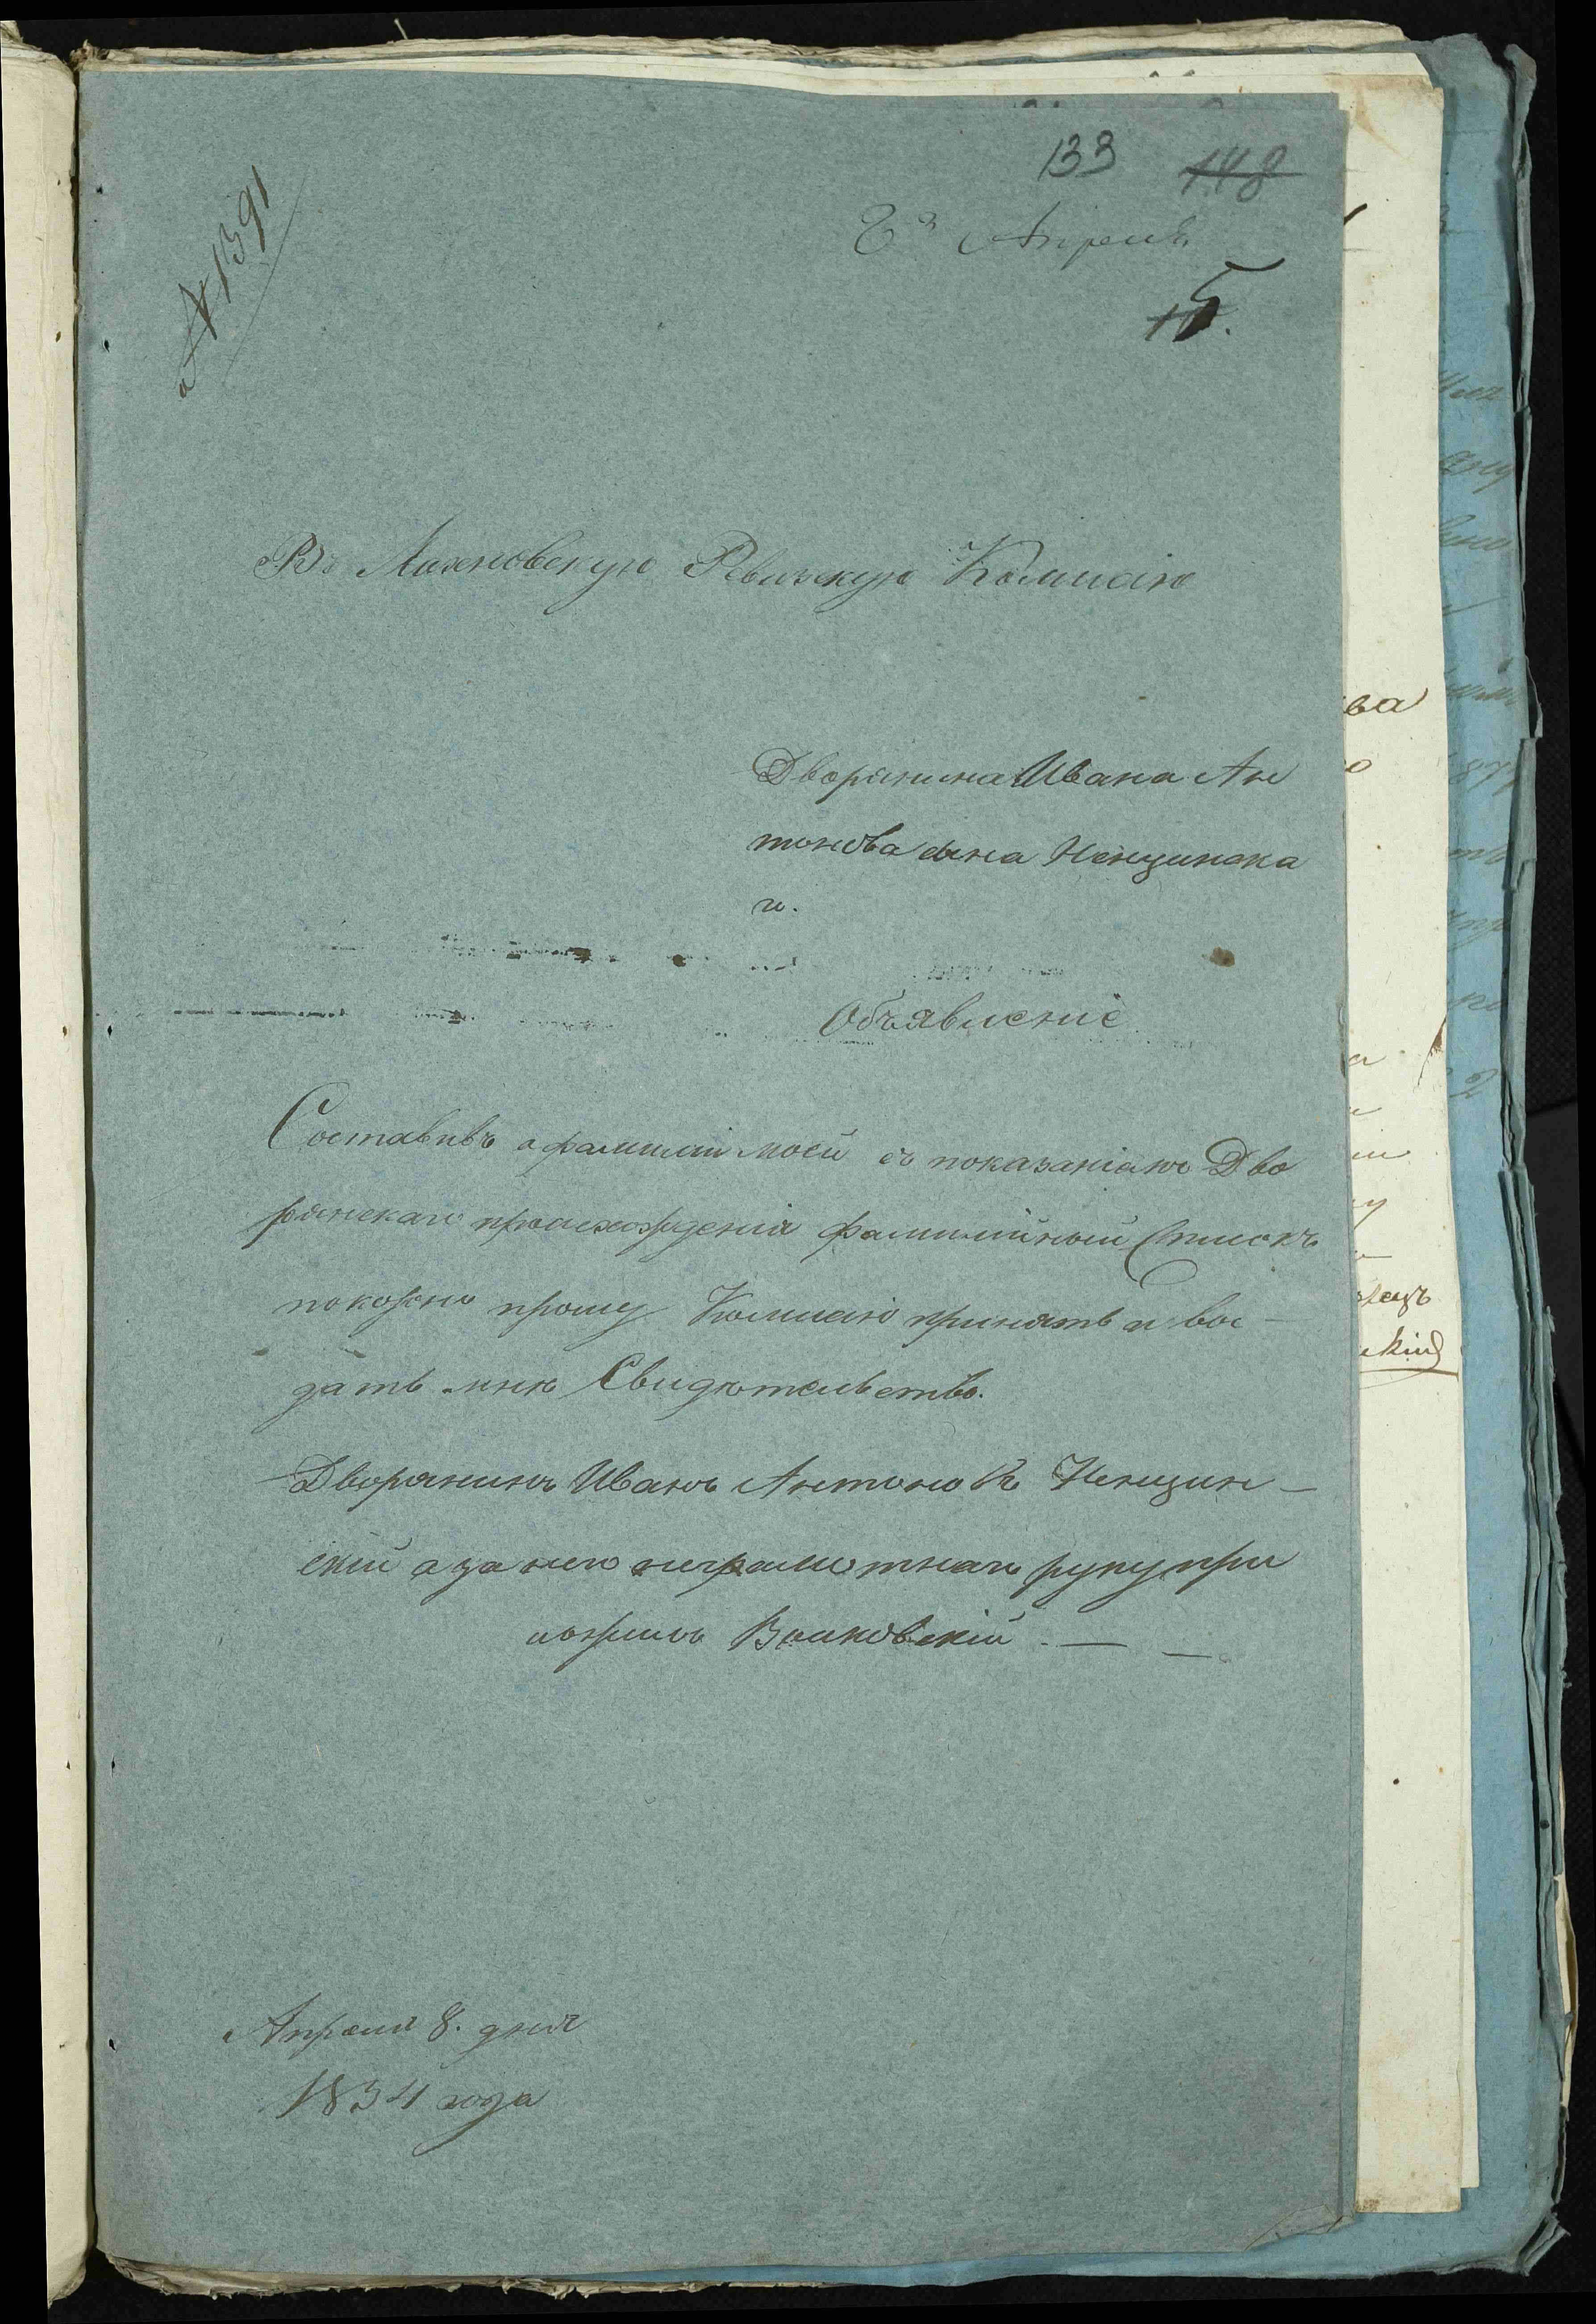 133 148
8го Апреля
№ 1391
15.
Въ Махновскую Ревизкую Комисію
Дворянина Ивана Ан
тонова сына Ненцинска
го.
Объявленіе
Составивъ о фамиліи моей съ показаніемъ Дво
рянскаго происхожденія фамилійный Списокъ
покорно прошу Комисію принять и вы-
дать мнѣ Свидѣтельство.
Дворянинъ Иванъ Антоновъ Ненцин-
скій а за него неграмотнаго руку при
ложилъ Волковскій
Апреля 8. дня
1834 года